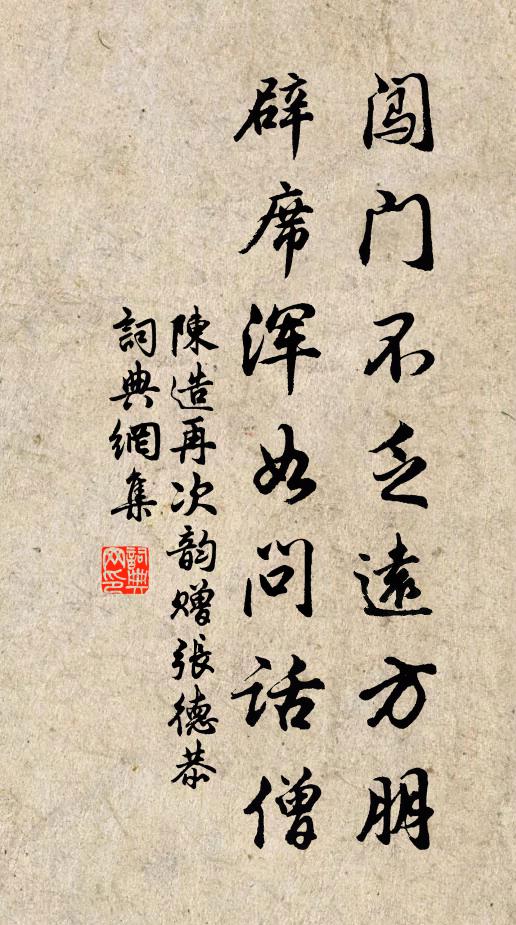 闯门不乏遠方朋
辟席浑如问话僧
陳造再次韵赠張德恭
詞典網集
詞典网印